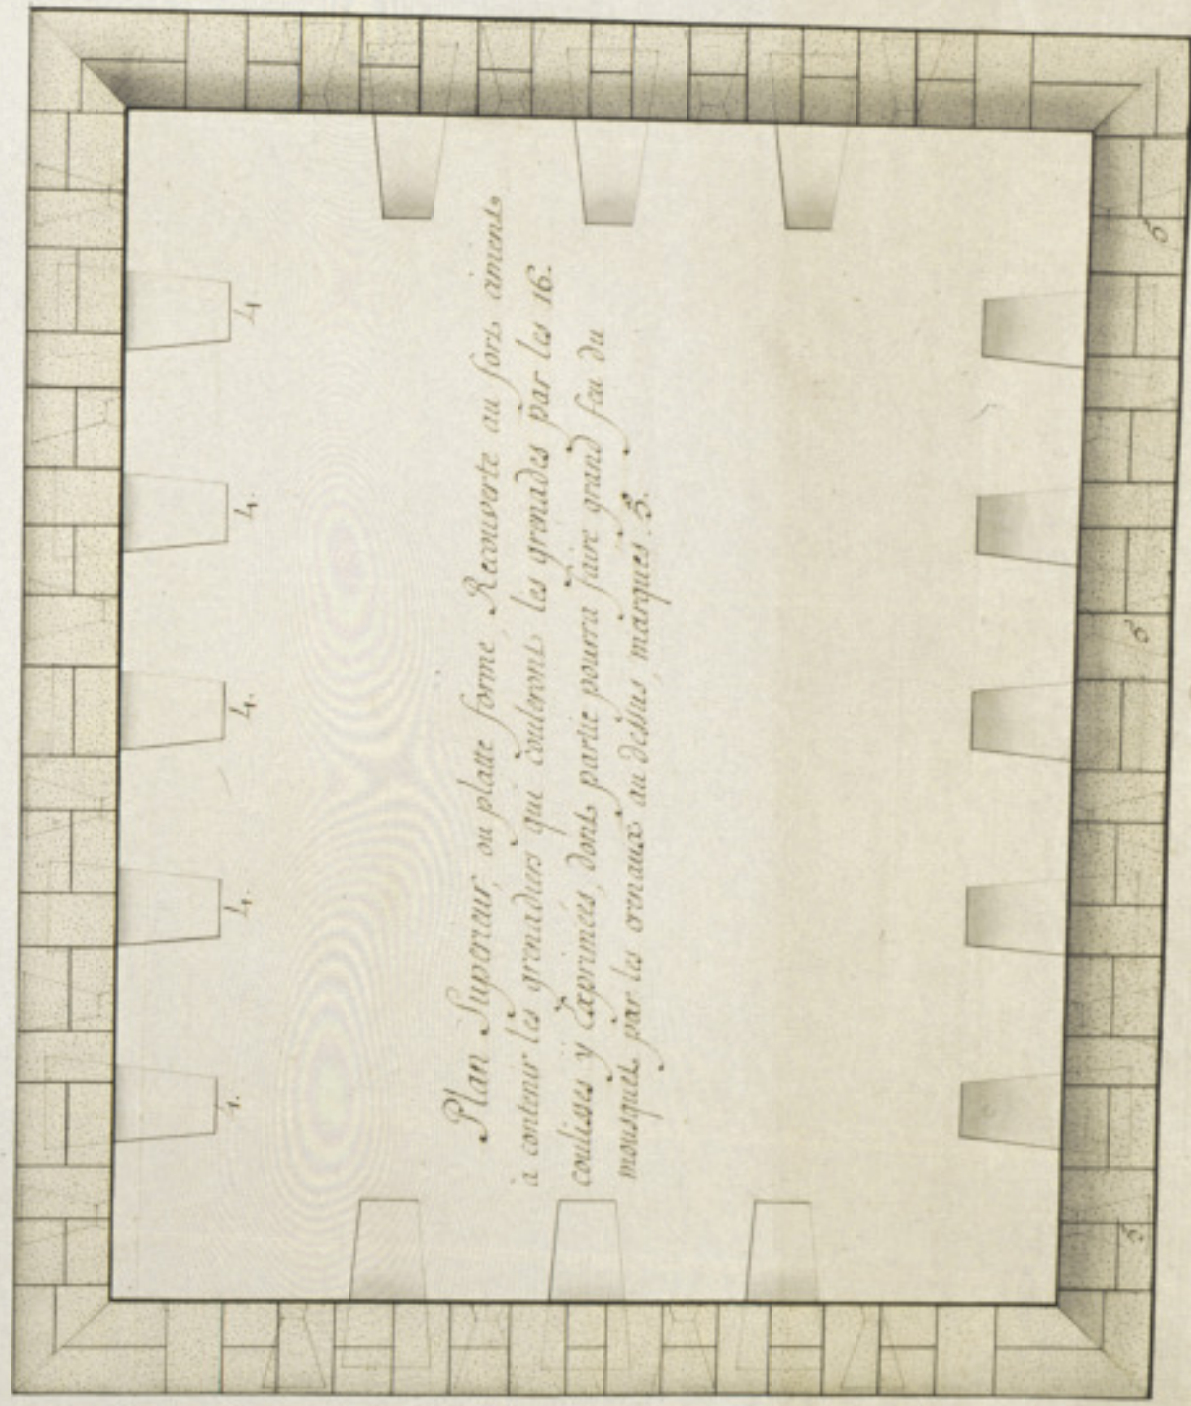 Plan Superieur, ou platte forme, Recouverte au fort, aiment
à contenir les grenadiers qui couleront les grenades par les 16.
coulisses y Exprimées, dont partie pourra faire grand feu du
mousquet par les crenaux au dessus, marqués. 5.
4
4.
4.
4.
4.
5
5
5